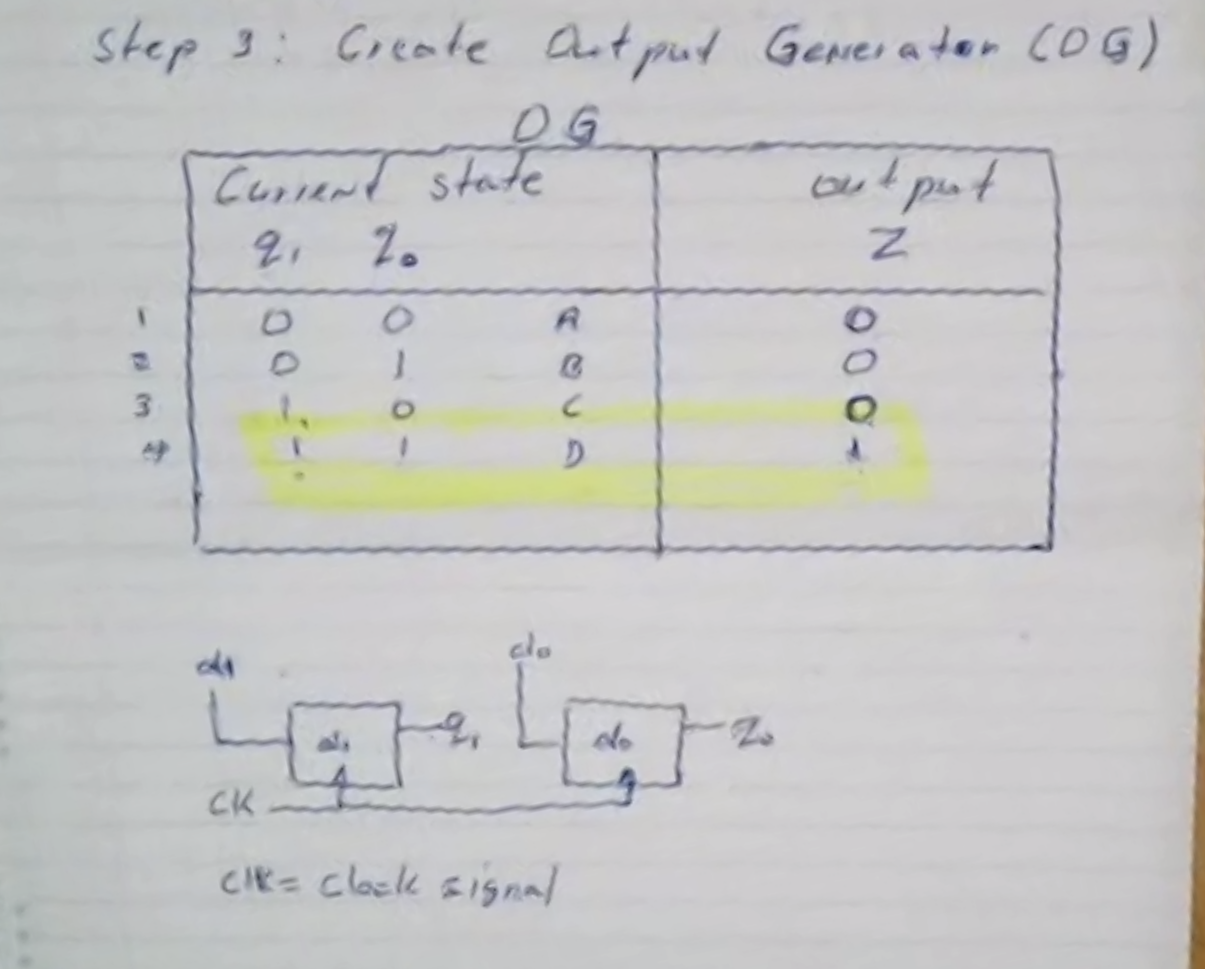 Step 3: Create Output Generator (OG)
OG
Current state output
q₁ q₀ Z
1 0 0 A 0
2 0 1 B 0
3 1 0 C 0
4 1 1 D 1
d₁ d₀
d₁ q₁ d₀ q₀
CK
CK = Clock signal